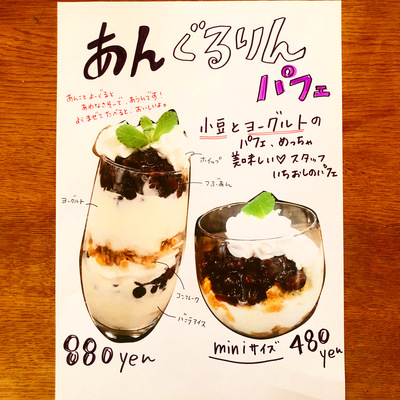 あんぐるりん
パフェ
あんことよーぐると
あわなさそーで、あうんです!
よくまぜてたべると、おいしいよ。
小豆とヨーグルトの
パフェ、めっちゃ
美味しい♡スタッフ
いちおしのパフェ
ホイップ
つぶあん
ヨーグルト
コーンフレーク
バニラアイス
880yen
miniサイズ 480
yen